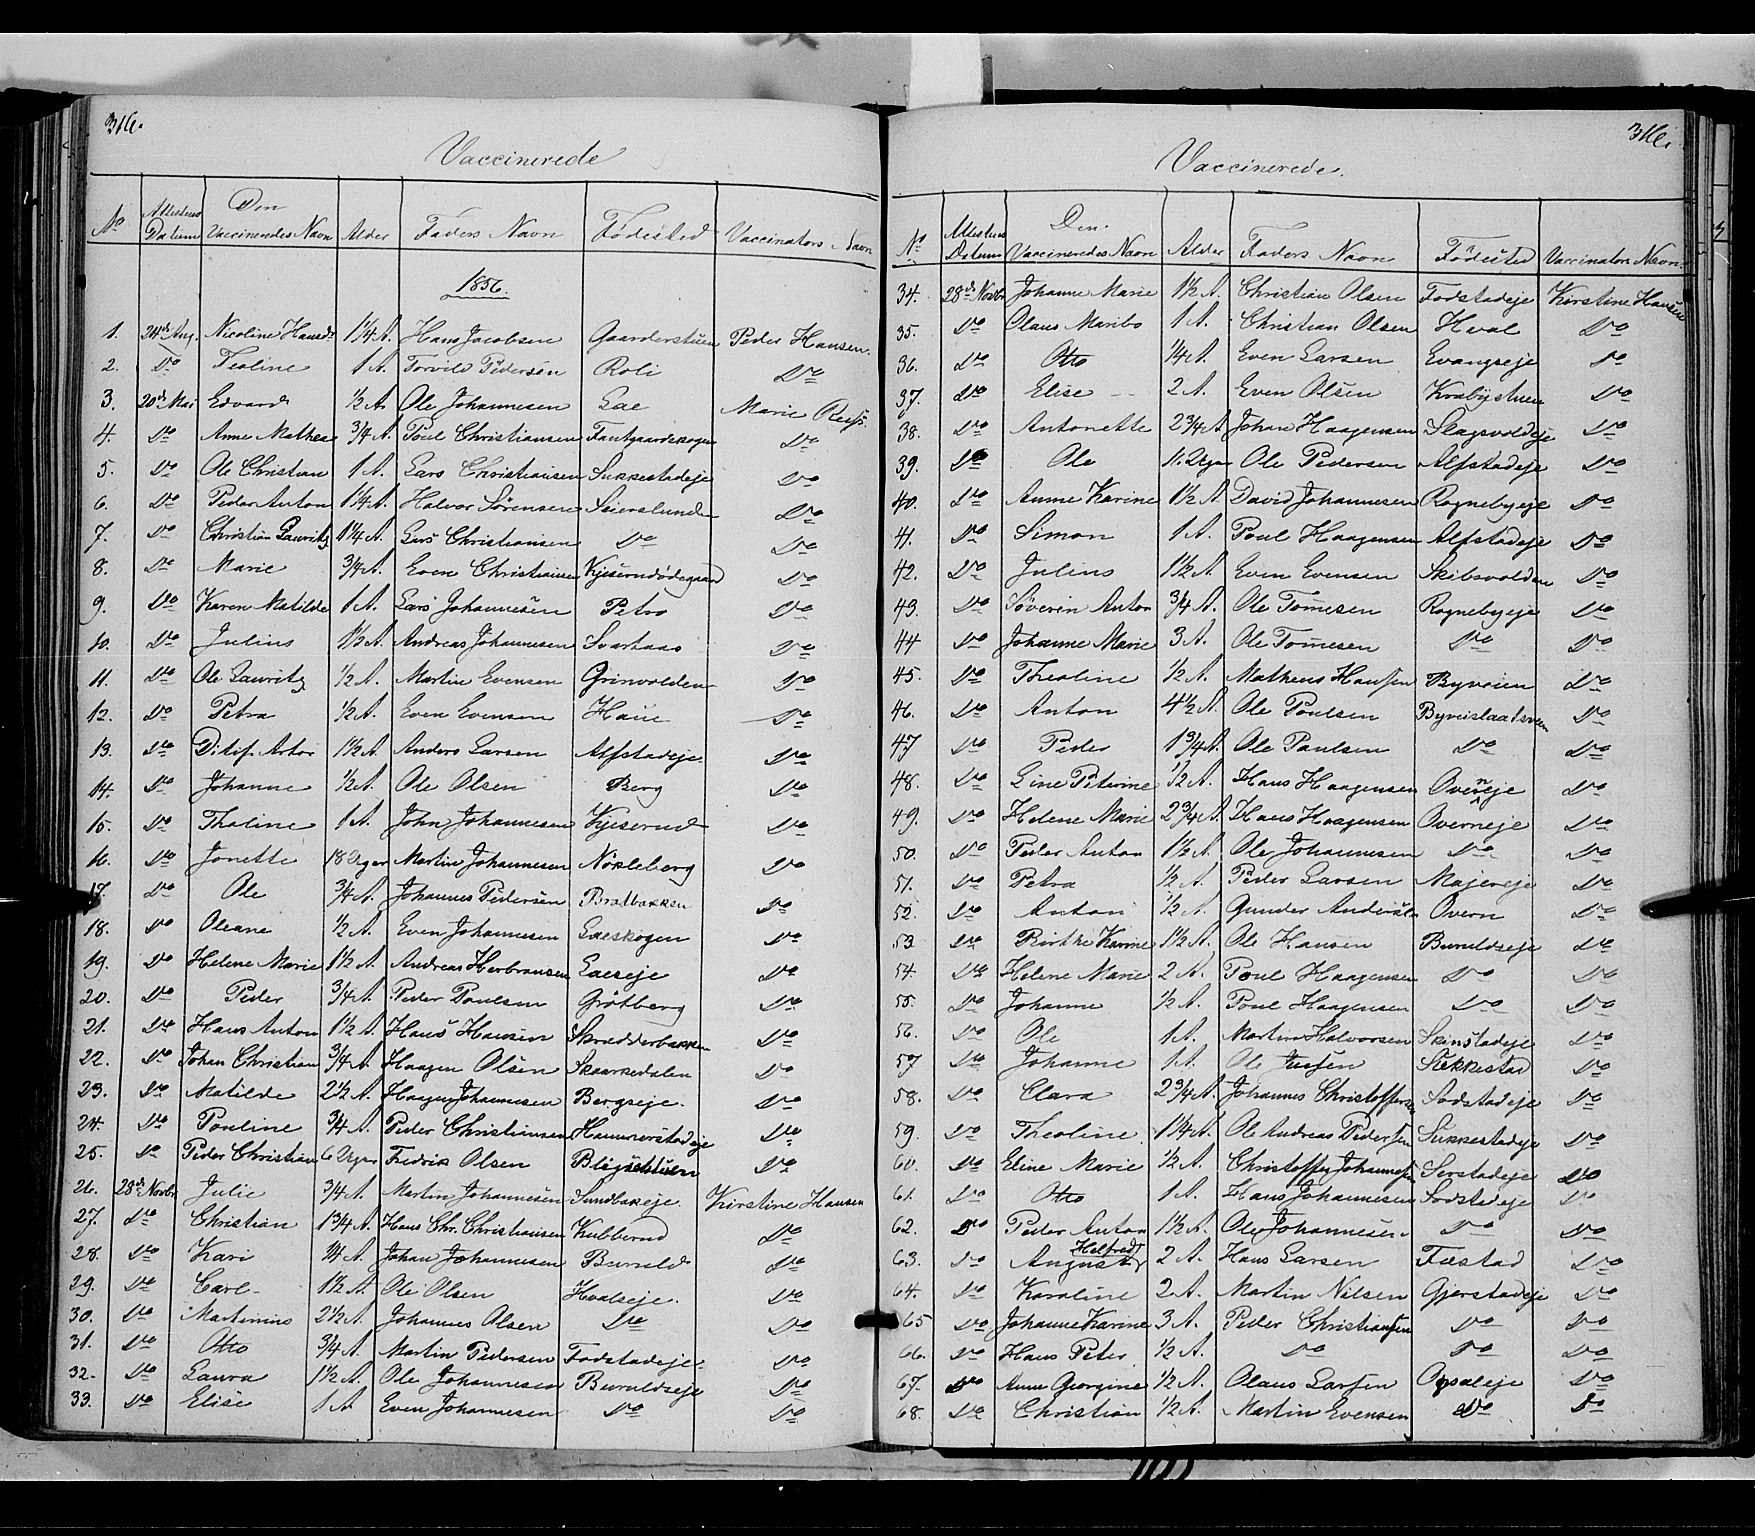 316.
Vaccinerede
No Attestens Datum Den Vaccineredes Navn Alder Faders Navn Fødested Vaccinators Navn
1856.
1. 24de Aug. Nicoline Hansd. 1 1/4 A. Hans Jacobsen Gaarderstuen Peder Hansen.
2. Do Teoline 1 A. Torvild Pedersen Roli Do
3. 20de Mai Edvard 1/2 A. Ole Johannesen Lae Marie
4. Do Anne Mathea 3/4 A. Poul Christiansen Fantgaardskogen Do
5. Do Ole Christian 1 A. Lars Christiansen Sukkestadeje Do
6. Do Peder Anton 1 1/4 A. Halvor Sørensen Seierslund Do
7. Do Christian Lauritz 1 1/4 A. Lars Christiansen Do Do
8. Do Marie 3/4 A. Even Christiansen Kjeserudødegaard Do
9. Do Karen Matilde 1 A. Lars Johannesen Petro Do
10. Do Julius 1 1/2 A. Andreas Johannesen Svartaas Do
11. Do Ole Lauritz 1/2 A. Martin Evensen Grinvolden Do
12. Do Petra 1/2 A. Even Evensen Haue Do
13. Do Ditlef Artor 1 1/2 A. Anders Larsen Alfstadeje Do
14. Do Johanne 1/2 A. Ole Olsen Berg Do
15. Do Thaline 1 A. John Johannesen Kjeserud Do
16. Do Jonette 18 Uger Martin Johannesen Nökleberg Do
17. Do Ole 3/4 A. Johannes Pedersen Bratbakken Do
18. Do Oleane 1/2 A. Even Johannesen Laeskogen Do
19. Do Helene Marie 1 1/2 A. Andreas Herbransen Laeseje Do
20. Do Peder 3/4 A. Peder Poulsen Grötberg Do
21. Do Hans Anton 1 1/2 A. Hans Hansen Skredderbakken Do
22. Do Johan Christian 3/4 A. Haagen Olsen Skaarsedalen Do
23. Do Matilde 2 1/2 A. Haagen Johannesen Bergseje. Do
24. Do Pouline 3/4 A. Peder Christiansen Hammerstadeje Do
25. Do Peder Christian 6 Uger Fredrik Olsen Do
26. 28de Novbr. Julie 3/4 A. Martin Johannesen Sundbakeje. Kirstine Hansen
27. Do Christian 1 3/4 A. Hans Chr. Christiansen Kubberud Do
28. Do Kari 1/4 A. Johan Johannesen Buruld Do
29. Do Carl 1 1/2 A. Ole Olsen Hvalseje. Do
30. Do Martinius 2 1/2 A. Johannes Olsen Do Do
31. Do Otto 3/4 A. Martin Pedersen Fodstadeje Do
32. Do Laura 1 1/2 A. Ole Johannesen Buruldseje Do
33. Do Elise 1 A. Even Johannesen Do Do
316.
Vaccinerede.
No Attestens Datum Den Vaccineredes Navn Alder Faders Navn Födested Vaccinators Navn
34. 28de Novbr. Johanne Marie 1 1/2 A. Christian Olsen Fodstadeje Kirstine Hansen
35. Do Olaus Maribo 1 A. Christian Olsen Hval Do
36. Do Otto 1/4 A. Even Larsen Evangseje Do
37. Do Elise 2 A. Even Olsen Krabystuen Do
38. Do Antonette 2 3/4 A. Johan Haagensen Slagsvoldeje Do
39. Do Ole 11. Uger Ole Pedersen Alfstadeje Do
40. Do Anne Karine 1 1/2 A. David Johannesen Rognebyeje Do
41. Do Simon 1 A. Poul Haagensen Alfstadeje Do
42. Do Julius 1 1/2 A. Even Evensen Skibsvolden Do
43. Do Söverin Anton 3/4 A. Ole Tom̄esen Rognebyeje Do
44 Do Johanne Marie 3 A. Ole Tom̄esen Do Do
45. Do Theoline 1/2 A. Matheus Hansen Byveien Do
46. Do Anton 4 1/2 A. Ole Poulsen Do
47 Do Peder 1 3/4 A. Ole Paulsen Do Do
48. Do Line Peterine 1/2 A. Hans Haagensen Overneje Do
49. Do Helene Marie 2 3/4 A. Hans Haagensen Overneje Do
50. Do Peder Anton 1 1/2 A. Ole Johannesen Do Do
51. Do Petra 1/2 A. Peder Larsen Majereje Do
52. Do Anton 1/2 A. Gunder Andersen Overn Do
53 Do Birthe Karine 1 1/2 A. Ole Hansen Buruldseje Do
54. Do Helene Marie 2 A. Poul Haagensen Do Do
55. Do Johanne 1/2 A. Poul Haagensen Do Do
56. Do Ole 1 A. Martin Halvorsen Skinstadeje Do
57 Do Johanne 1 A. Ole Jensen Stekkestad Do
58. Do Clara 2 3/4 A. Johannes Christoffersen Sodstadeje Do
59. Do Theoline 1 1/4 A. Ole Andreas Pedersen Sukkestadeje Do
60. Do Eline Marie 1/2 A. Christoffer Johannesen Serstadeje Do
61. Do Otto 1 A. Hans Johannesen Sodstadeje Do
62. Do Peder Anton 1 1/2 A. Ole Johannesen Do Do
63. Do August Helfred 2 A. Hans Larsen Fæstad Do
64. Do Karoline 2 A. Martin Nilsen Gjerstadeje Do
65 Do Johanne Karine 3 A. Peder Christiansen Do Do
66. Do Hans Peter 1/2 A. Do Do Do
67. Do Anne Georgine 1/2 A. Olaus Larsen Opsaleje Do
68. Do Christian 1/2 A. Martin Evensen Do Do